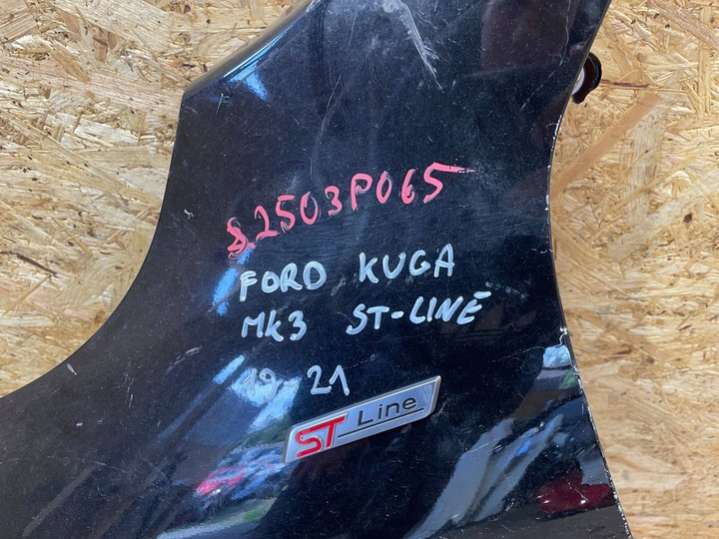 S2503P065
FORD KUGA
MK3 ST-LINE
19-21
ST Line